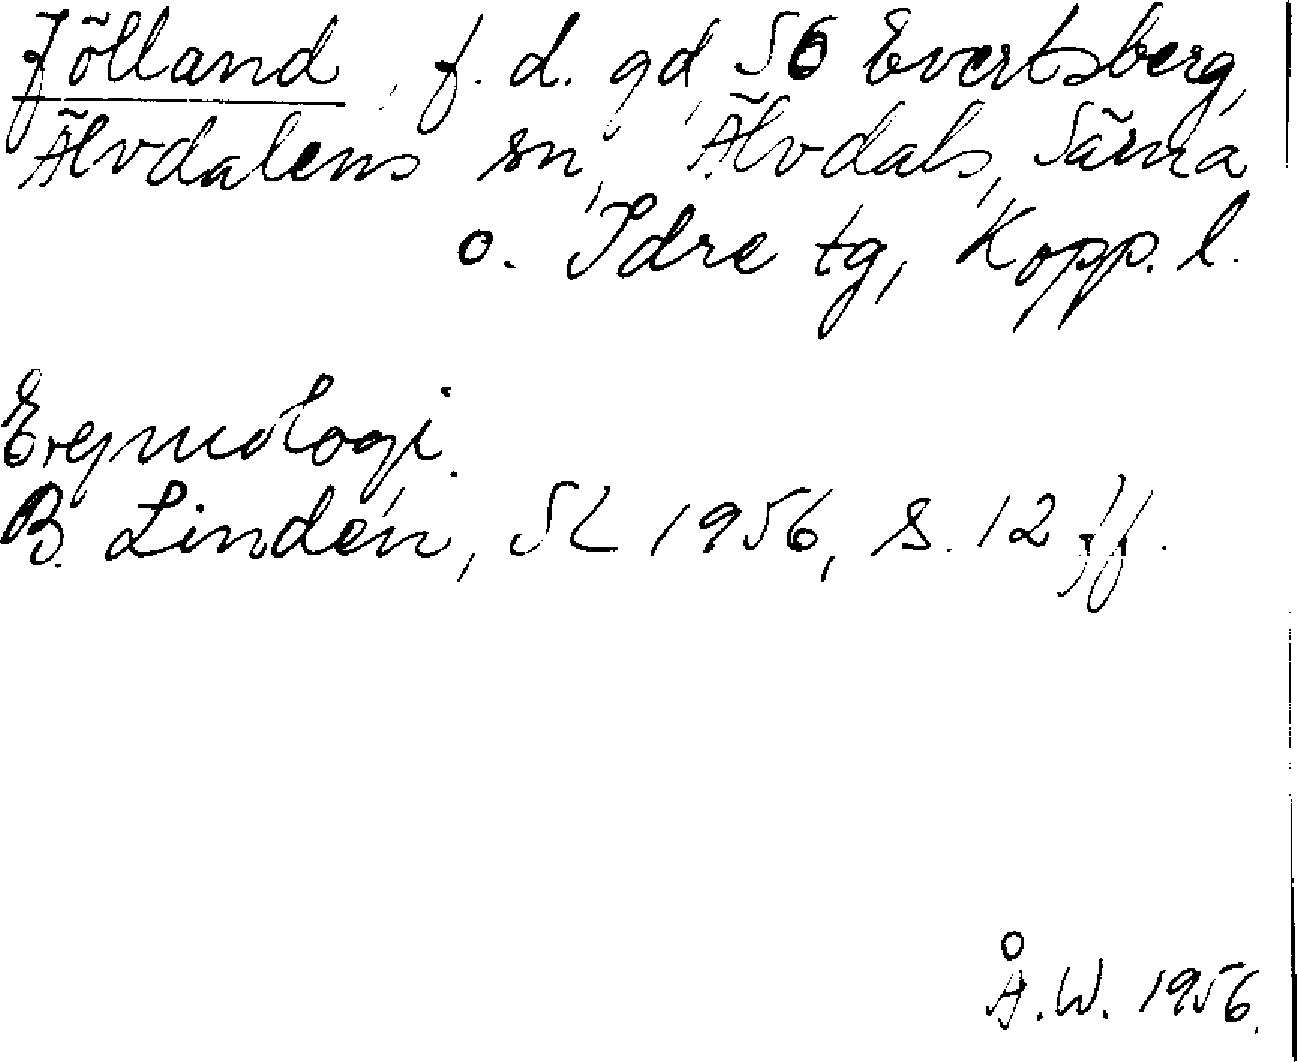 Jölland, f. d. gd, 56 Evertsberg,
Älvdalens sn, Älvdals, Särna
o. Idre tg, Kopp. l.
Etymologi.
B. Lindén, SL 1956, s. 12 ff.
Å. W. 1956.